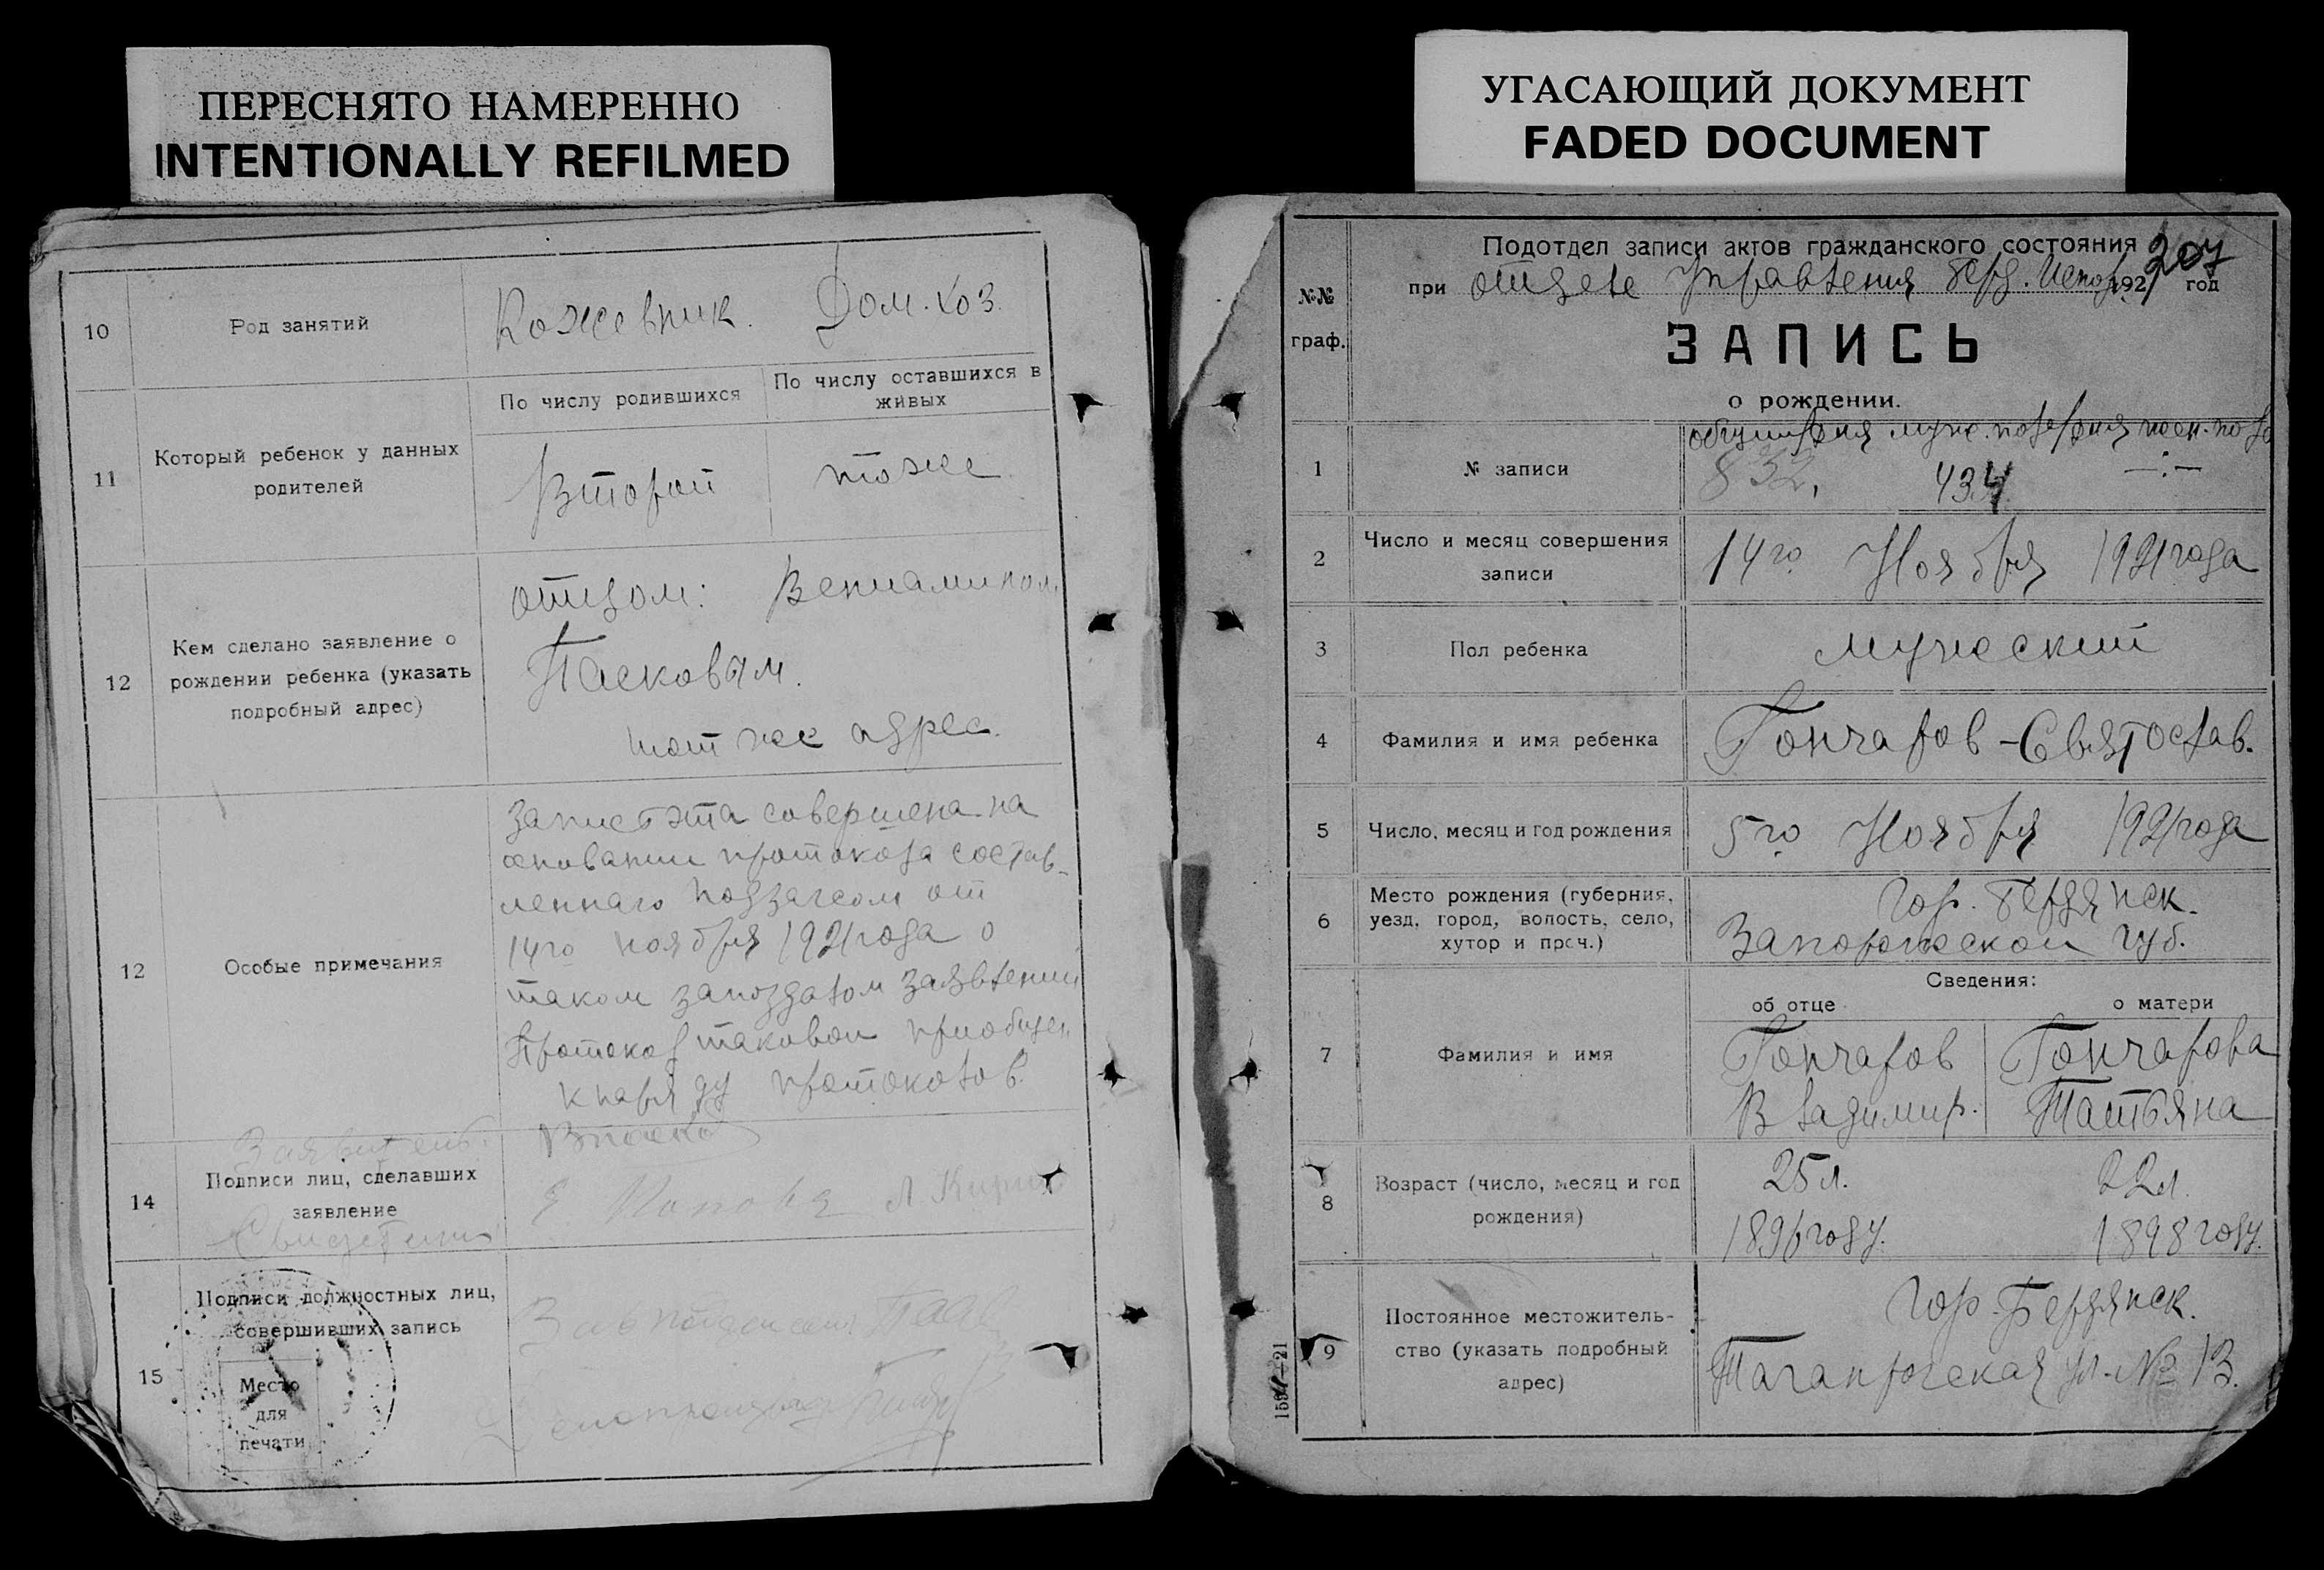 ПЕРЕСНЯТО НАМЕРЕННО
INTENTIONALLY REFILMED
10
Род занятий
Кожевник.
Дом. хоз.
11
Который ребенок у данных
родителей
По числу родившихся
По числу оставшихся в
живых
Второй
тоже
12
Кем сделано заявление о
рождении ребенка (указать
подробный адрес)
отцом: Вениамином
Пасковым.
тот же адрес.
12
Особые примечания
Запись эта совершена на
основании протокола состав-
леннаго Подзагсом от
14го ноября 1921 года о
таком запоздалом заявлении
Протокол таковой приобщен
к наряду протоколов.
14
Заявитель:
Подписи лиц, сделавших
заявление
Свидетели
Е. Попова
15
Подписи должностных лиц,
совершивших запись
Место
для
печати
УГАСАЮЩИЙ ДОКУМЕНТ
FADED DOCUMENT
207
№№
граф.
Подотдел записи актов гражданского состояния
при отделе Управления Берд. Испол. 1921 год
ЗАПИСЬ
о рождении.
1
№ записи
общий для муж. пола для жен. пола
832. 434 —:—
2
Число и месяц совершения
записи
14го Ноября 1921 года
3
Пол ребенка
мужеский
4
Фамилия и имя ребенка
Гончаров - Святослав.
5
Число, месяц и год рождения
5го Ноября 1921 года
6
Место рождения (губерния,
уезд, город, волость, село,
хутор и проч.)
Гор. Бердянск.
Запорожской губ.
7
Фамилия и имя
Сведения:
об отце
о матери
Гончаров
Владимир.
Гончарова
Татьяна
8
Возраст (число, месяц и год
рождения)
25 л.
1896 году.
22 л.
1898 году.
9
Постоянное местожитель-
ство (указать подробный
адрес)
Гор. Бердянск.
Таганрогская ул. № 13.